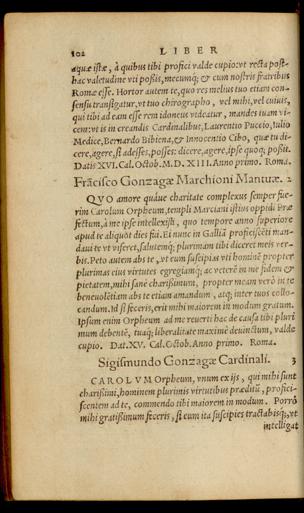 102 LIBER
aquæ istæ, à quibus tibi profici valde cupio: vt recta post-
hac valetudine vti possis, mecumq́; & cum nostris fratribus
Romæ esse. Hortor autem te, quo res melius tuo etiam con-
sensu transigatur, vt tuo chirographo, vel mihi, vel cuiuis,
qui tibi ad eam esse rem idoneus videatur, mandes tuam vi-
cem: vt is in creandis Cardinalibus, Laurentio Puccio, Iulio
Medice, Bernardo Bibiena, & Innocentio Cibo, quæ tu di-
cere, agere, si adesses, posses: dicere, agere, ipse quoq; possit.
Datis XVI. Cal. Octob. M. D. XIII. Anno primo. Roma.
Frãcisco Gonzagæ Marchioni Mantuæ. 2
QVO amore quáue charitate complexus semper fue-
rim Carolum Orpheum, templi Marciani istius oppidi Præ
fectum, à me ipse intellexisti, quo tempore anno superiore
apud te aliquot dies fui. Ei nunc in Gallia proficiscẽti man-
daui te vt viseret, salutemq́; plurimam tibi diceret meis ver-
bis. Peto autem abs te, vt eum suscipias vti hominẽ propter
plurimas eius virtutes egregiũ, ac veterẽ in me fidem &
pietatem, mihi sanè charissimum, propter meam verò in te
beneuolẽtiam abs te etiam amandum, atq; inter tuos collo-
candum. Id si feceris, erit mihi maiorem in modum gratum.
Ipsum enim Orpheum ad me reuerti hac de causa tibi pluri
mum debentẽ, tuaq́; liberalitate maximè deuinctum, valde
cupio. Dat. XV. Cal. Octob. Anno primo. Roma.
Sigismundo Gonzagæ Cardinali. 3
CAROLVM Orpheum, vnum ex ijs, qui mihi sunt
charissimi, hominem plurimis virtutibus præditũ, profici-
scentem ad te, commendo tibi maiorem in modum. Porrò
mihi gratissimum feceris, si eum ita suscipies tractabisq́;, vt
intelligat